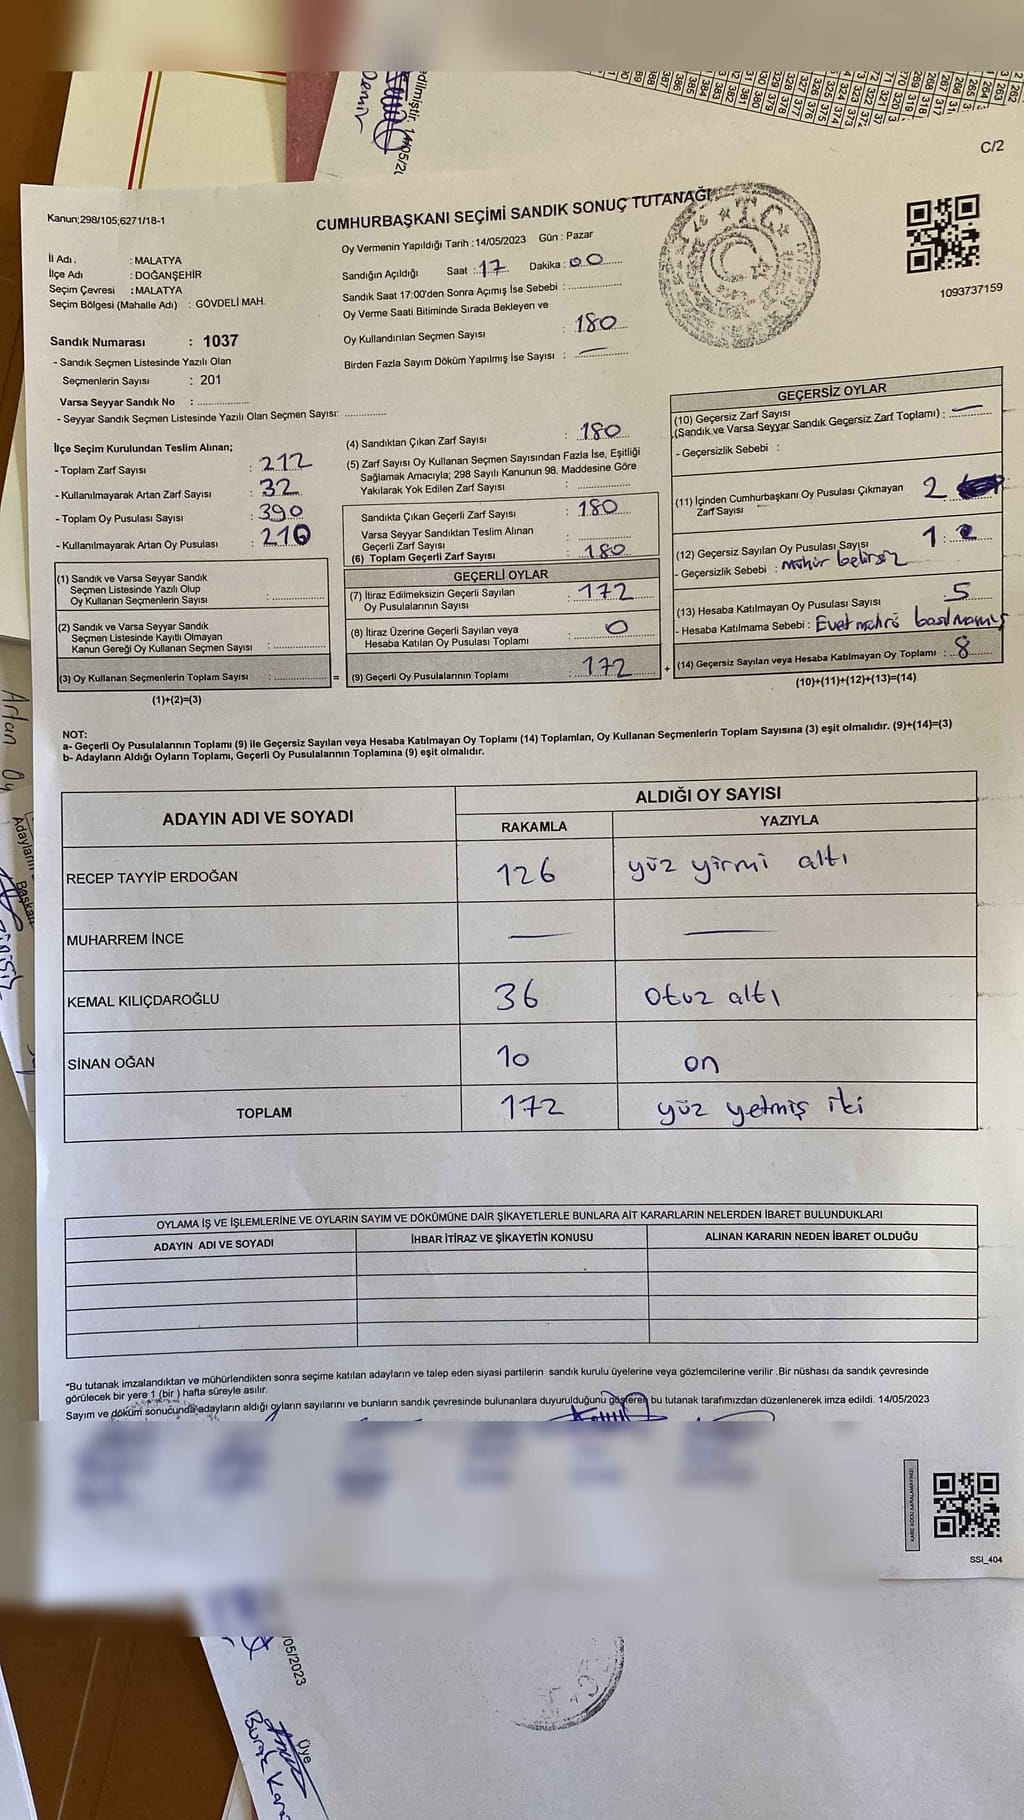 C/2
Kanun;298/105;6271/18-1
CUMHURBAŞKANI SEÇİMİ SANDIK SONUÇ TUTANAĞI
1093737159
İl Adı. : MALATYA
İlçe Adı : DOĞANŞEHİR
Seçim Çevresi : MALATYA
Seçim Bölgesi (Mahalle Adı) : GÖVDELİ MAH.
Sandık Numarası : 1037
- Sandık Seçmen Listesinde Yazılı Olan
Seçmenlerin Sayısı : 201
Varsa Seyyar Sandık No : ................
- Seyyar Sandık Seçmen Listesinde Yazılı Olan Seçmen Sayısı: .............
Oy Vermenin Yapıldığı Tarih : 14/05/2023 Gün : Pazar
Sandığın Açıldığı Saat : 17 Dakika : 00
Sandık Saat 17:00'den Sonra Açımış İse Sebebi : ................
Oy Verme Saati Bitiminde Sırada Bekleyen ve
Oy Kullandırılan Seçmen Sayısı : 180
Birden Fazla Sayım Döküm Yapılmış İse Sayısı : —
İlçe Seçim Kurulundan Teslim Alınan;
- Toplam Zarf Sayısı : 212
- Kullanılmayarak Artan Zarf Sayısı : 32
- Toplam Oy Pusulası Sayısı : 390
- Kullanılmayarak Artan Oy Pusulası : 210
(1) Sandık ve Varsa Seyyar Sandık
Seçmen Listesinde Yazılı Olup
Oy Kullanan Seçmenlerin Sayısı : ................
(2) Sandık ve Varsa Seyyar Sandık
Seçmen Listesinde Kayıtlı Olmayan
Kanun Gereği Oy Kullanan Seçmen Sayısı : ................
(3) Oy Kullanan Seçmenlerin Toplam Sayısı : ................
(1)+(2)=(3)
(4) Sandıktan Çıkan Zarf Sayısı : 180
(5) Zarf Sayısı Oy Kullanan Seçmen Sayısından Fazla İse, Eşitliği
Sağlamak Amacıyla; 298 Sayılı Kanunun 98. Maddesine Göre
Yakılarak Yok Edilen Zarf Sayısı : ................
Sandıkta Çıkan Geçerli Zarf Sayısı : 180
Varsa Seyyar Sandıktan Teslim Alınan
Geçerli Zarf Sayısı : ................
(6) Toplam Geçerli Zarf Sayısı : 180
GEÇERLİ OYLAR
(7) İtiraz Edilmeksizin Geçerli Sayılan
Oy Pusulalarının Sayısı : 172
(8) İtiraz Üzerine Geçerli Sayılan veya
Hesaba Katılan Oy Pusulası Toplamı : 0
= (9) Geçerli Oy Pusulalarının Toplamı : 172
GEÇERSİZ OYLAR
(10) Geçersiz Zarf Sayısı
(Sandık ve Varsa Seyyar Sandık Geçersiz Zarf Toplamı) : —
- Geçersizlik Sebebi :
(11) İçinden Cumhurbaşkanı Oy Pusulası Çıkmayan
Zarf Sayısı 2
(12) Geçersiz Sayılan Oy Pusulası Sayısı : 1
- Geçersizlik Sebebi : Mühür belirsiz
(13) Hesaba Katılmayan Oy Pusulası Sayısı 5
- Hesaba Katılmama Sebebi : Evet mührü basılmamış
+ (14) Geçersiz Sayılan veya Hesaba Katılmayan Oy Toplamı : 8
(10)+(11)+(12)+(13)=(14)
NOT:
a- Geçerli Oy Pusulalarının Toplamı (9) ile Geçersiz Sayılan veya Hesaba Katılmayan Oy Toplamı (14) Toplamları, Oy Kullanan Seçmenlerin Toplam Sayısına (3) eşit olmalıdır. (9)+(14)=(3)
b- Adayların Aldığı Oyların Toplamı, Geçerli Oy Pusulalarının Toplamına (9) eşit olmalıdır.
ADAYIN ADI VE SOYADI
ALDIĞI OY SAYISI
RAKAMLA YAZIYLA
RECEP TAYYİP ERDOĞAN 126 yüz yirmi altı
MUHARREM İNCE — —
KEMAL KILIÇDAROĞLU 36 otuz altı
SİNAN OĞAN 10 on
TOPLAM 172 yüz yetmiş iki
OYLAMA İŞ VE İŞLEMLERİNE VE OYLARIN SAYIM VE DÖKÜMÜNE DAİR ŞİKAYETLERLE BUNLARA AİT KARARLARIN NELERDEN İBARET BULUNDUKLARI
ADAYIN ADI VE SOYADI İHBAR İTİRAZ VE ŞİKAYETİN KONUSU ALINAN KARARIN NEDEN İBARET OLDUĞU
*Bu tutanak imzalandıktan ve mühürlendikten sonra seçime katılan adayların ve talep eden siyasi partilerin sandık kurulu üyelerine veya gözlemcilerine verilir .Bir nüshası da sandık çevresinde
görülecek bir yere 1 (bir ) hafta süreyle asılır.
Sayım ve döküm sonucunda adayların aldığı oyların sayılarını ve bunların sandık çevresinde bulunanlara duyurulduğunu gösteren bu tutanak tarafımızdan düzenlenerek imza edildi. 14/05/2023
KARE KODU KARALAMAYINIZ!
SSI_404
Artan Oy
Başkan
/05/2023
Üye
Burak